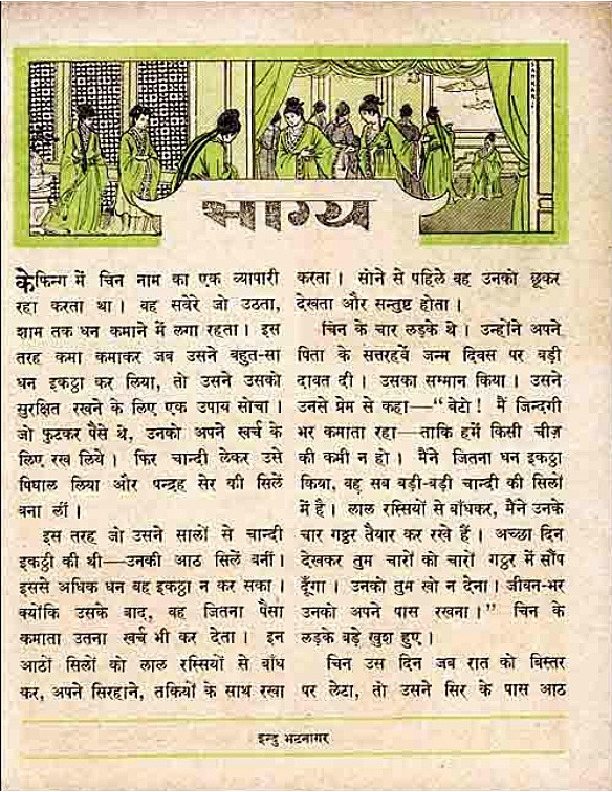 भाग्य
केफिन्ग में चिन नाम का एक व्यापारी
रहा करता था। वह सवेरे जो उठता,
शाम तक धन कमाने में लगा रहता। इस
तरह कमा कमाकर जब उसने बहुत-सा
धन इकट्ठा कर लिया, तो उसने उसको
सुरक्षित रखने के लिए एक उपाय सोचा।
जो फुटकर पैसे थे, उनको अपने खर्च के
लिए रख लिये। फिर चान्दी लेकर उसे
पिघाल लिया और पन्द्रह सेर की सिलें
बना लीं।
इस तरह जो उसने सालों से चान्दी
इकट्ठी की थी—उनकी आठ सिलें बनीं।
इससे अधिक धन वह इकट्ठा न कर सका।
क्योंकि उसके बाद, वह जितना पैसा
कमाता उतना खर्च भी कर देता। इन
आठों सिलों को लाल रस्सियों से बाँध
कर, अपने सिरहाने, तकियों के साथ रखा
करता। सोने से पहिले वह उनको छूकर
देखता और सन्तुष्ट होता।
चिन के चार लड़के थे। उन्होंने अपने
पिता के सत्तरहवें जन्म दिवस पर बड़ी
दावत दी। उसका सम्मान किया। उसने
उनसे प्रेम से कहा—"बेटो! मैं जिन्दगी
भर कमाता रहा—ताकि हमें किसी चीज़
की कमी न हो। मैंने जितना धन इकट्ठा
किया, वह सब बड़ी-बड़ी चान्दी की सिलों
में है। लाल रस्सियों से बाँधकर, मैंने उनके
चार गट्ठर तैयार कर रखे हैं। अच्छा दिन
देखकर तुम चारों को चारों गट्ठर में सौंप
दूँगा। उनको तुम खो न देना। जीवन-भर
उनको अपने पास रखना।" चिन के
लड़के बड़े खुश हुए।
चिन उस दिन जब रात को बिस्तर
पर लेटा, तो उसने सिर के पास आठ
इन्दु भटनागर